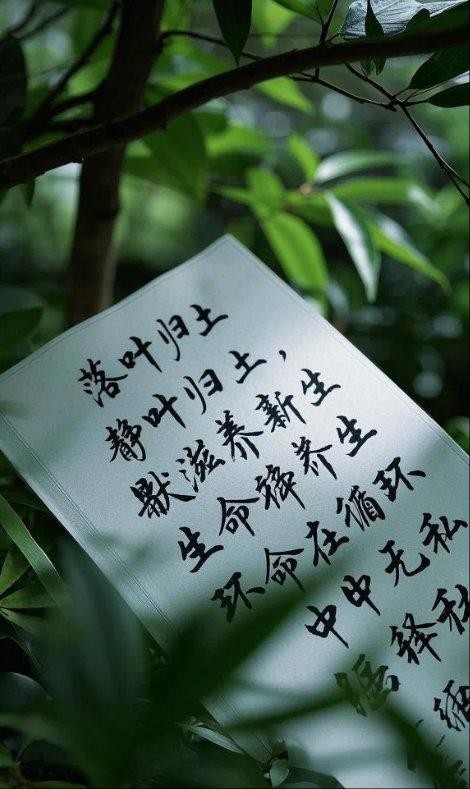 落叶归土
静叶归土，
默滋养新生
生命养生
环命在循环
中中无私
释私